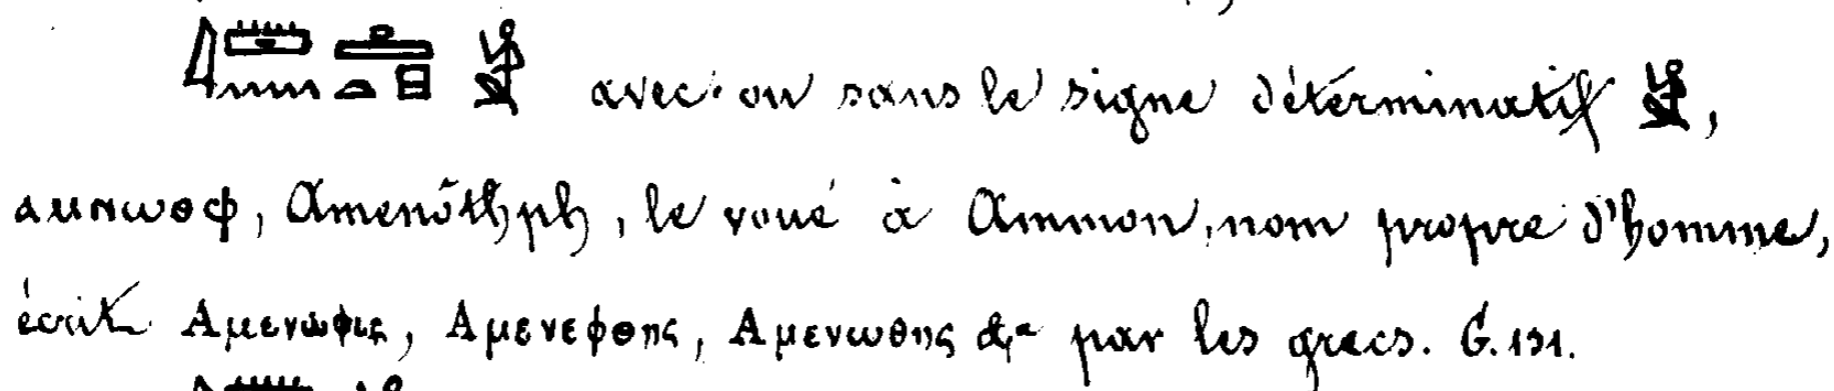 𓇋𓏠𓈖𓊵𓏏𓊪 𓀀 avec ou sans le signe déterminatif 𓀀,
ⲁⲙⲛⲱⲑⲫ, Amenôthph, le voué à Ammon, nom propre d'homme,
écrit Αμενωφις, Αμενεφθης, Αμενωθης &ª par les grecs. G. 131.